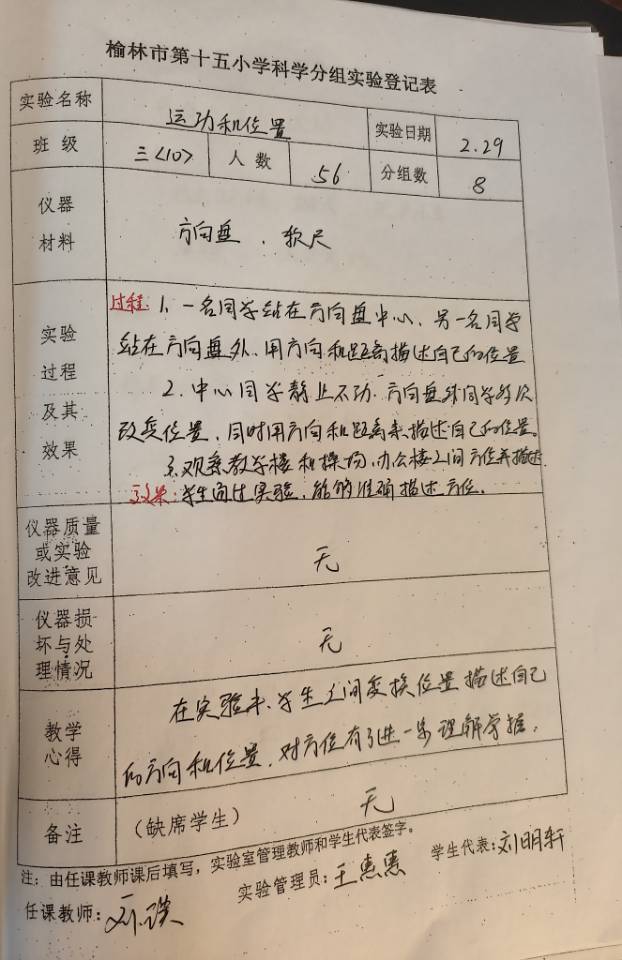 榆林市第十五小学科学分组实验登记表
实验名称 运动和位置 实验日期 2.29
班 级 三〈10〉 人 数 56 分组数 8
仪器
材料
方向盘、软尺
实验
过程
及其
效果
过程: 1、一名同学站在方向盘中心、另一名同学
站在方向盘外、用方向和距离描述自己的位置
2、中心同学静止不动、方向盘外同学多次
改变位置、同时用方向和距离来描述自己的位置。
3、观察教学楼和操场、办公楼之间方位并描述.
效果: 学生通过实验、能够准确描述方位.
仪器质量
或实验
改进意见
无
仪器损
坏与处
理情况
无
教学
心得
在实验中、学生之间变换位置描述自己
的方向和位置、对方位有了进一步理解掌握.
备注 (缺席学生) 无
注: 由任课教师课后填写，实验室管理教师和学生代表签字。
任课教师: 实验管理员: 王惠惠 学生代表: 刘明轩